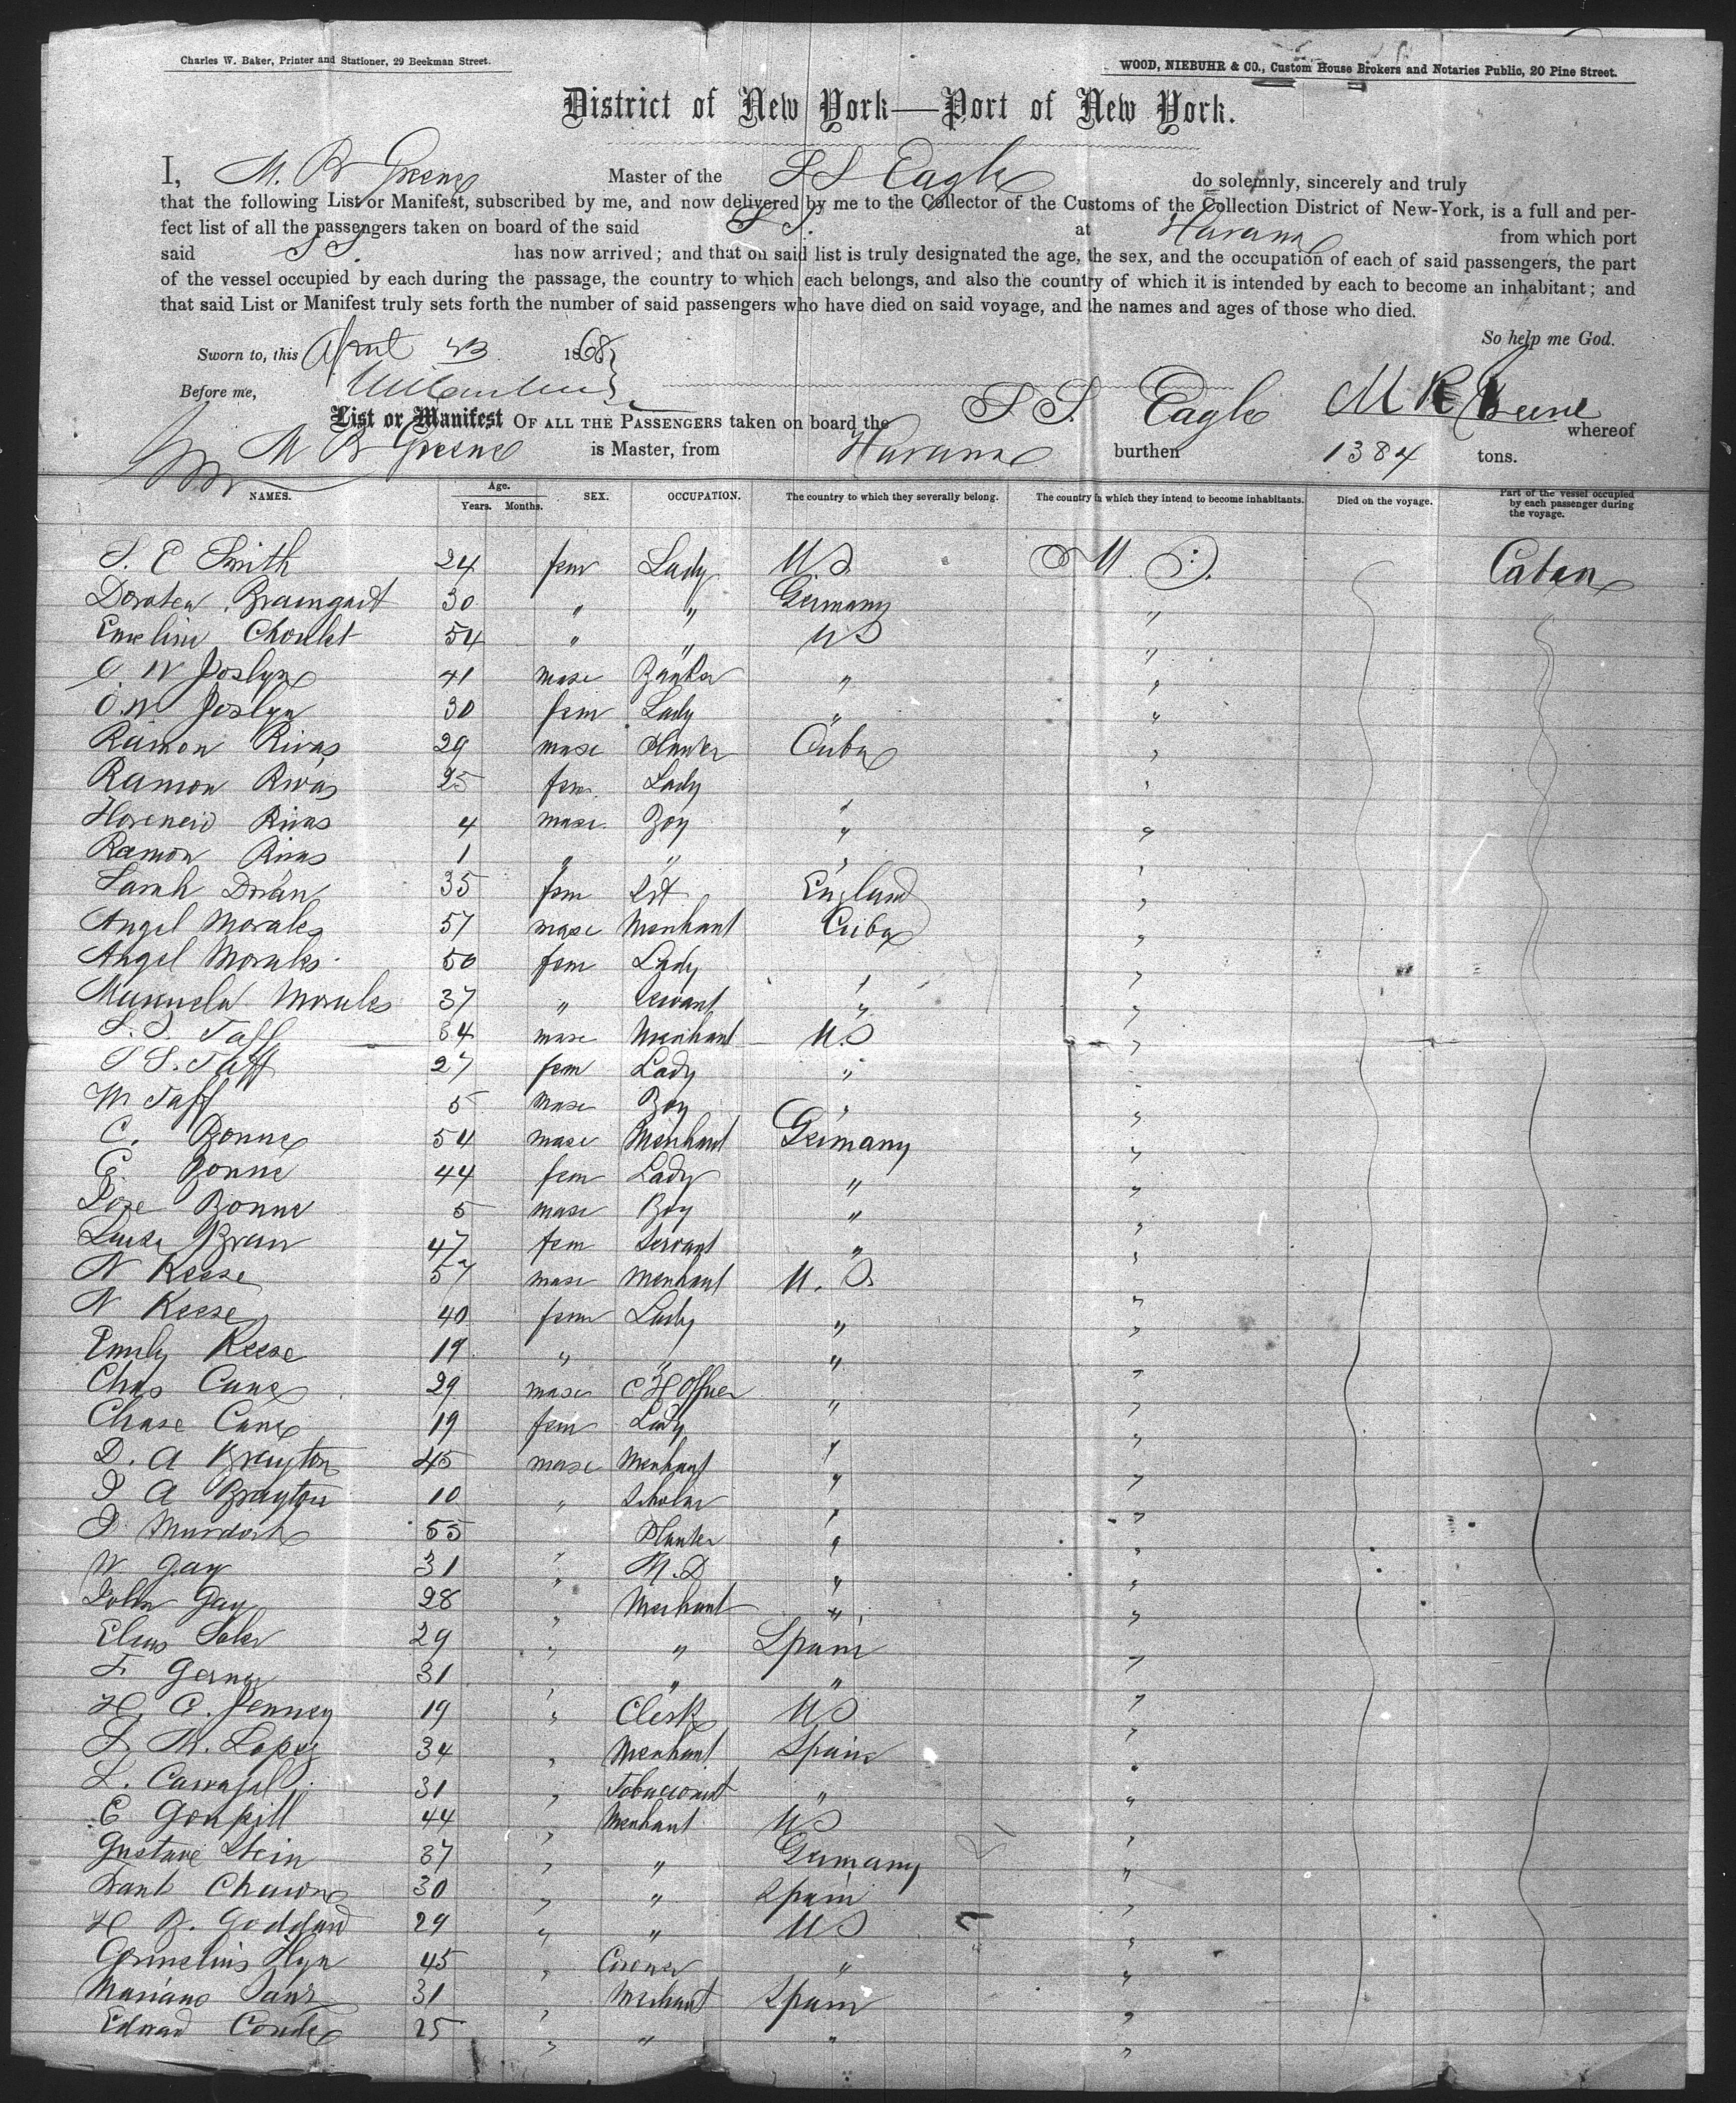 Charles W. Baker, Printer and Stationer, 29 Beekman Street.
WOOD, NIEBUHR & CO., Custom House Brokers and Notaries Public, 20 Pine Street.
District of New York—Port of New York.
I, M. R Greene Master of the S S Eagle do solemnly, sincerely and truly
that the following List or Manifest, subscribed by me, and now delivered by me to the Collector of the Customs of the Collection District of New-York, is a full and per-
fect list of all the passengers taken on board of the said S S. at Havana from which port
said S S. has now arrived; and that on said list is truly designated the age, the sex, and the occupation of each of said passengers, the part
of the vessel occupied by each during the passage, the country to which each belongs, and also the country of which it is intended by each to become an inhabitant; and
that said List or Manifest truly sets forth the number of said passengers who have died on said voyage, and the names and ages of those who died.
So help me God.
Sworn to, this April 23 1868
Before me, M R Greene
List or Manifest OF ALL THE PASSENGERS taken on board the S S. Eagle whereof
M R Greene is Master, from Havana burthen 1384 tons.
NAMES. Age. Years. Months. SEX. OCCUPATION. The country to which they severally belong. The country in which they intend to become inhabitants. Died on the voyage. Part of the vessel occupied by each passenger during the voyage.
S. C Smith 24 fem Lady U S. U. S. Caben
30 " " Germany "
54 " " U S "
W Joslyn 41 masc Banker " "
Joslyn 30 fem Lady " "
Ramon Rivas 29 masc Planter Cuba "
Ramon Rivas 25 fem. Lady " "
Rivas 4 masc. Boy " "
Ramon Rivas 1 " " " "
Sarah 35 fem England "
Angel Morales 57 masc Merchant Cuba "
Angel Morales 50 fem Lady " "
Manuela Morales 37 " Servant " "
Taff 34 masc Merchant U. S "
S. Taff 27 fem Lady " "
M Taff 5 masc Boy " "
C. Bonne 54 masc Merchant Germany "
C Bonne 44 fem Lady " "
Bonne 5 masc Boy " "
47 fem Servant " "
N Keese 57 masc Merchant U. S. "
N Keese 40 fem Lady " "
Emily Keese 19 " " " "
Chas Cane 29 masc C H Officer " "
Chase Cane 19 fem Lady " "
D. A Brayton 45 masc Merchant " "
A Brayton 10 " Scholar " "
Murdoch 55 " Planter " "
W. Gay 31 " M. D " "
John Gay 28 " Merchant " "
29 " " Spain "
F. 31 " " " "
H. C. Jenney 19 " Clerk U S "
M. Lopez 34 " Merchant Spain "
L. Carvajal 31 " Tobacconist " "
C Goupill 44 " Merchant U S "
Gustave Stein 37 " " Germany "
30 " " Spain "
H B. Goddard 29 " " U S "
45 " " "
Mariano 31 " Merchant Spain "
Edward Conde 25 " " " "